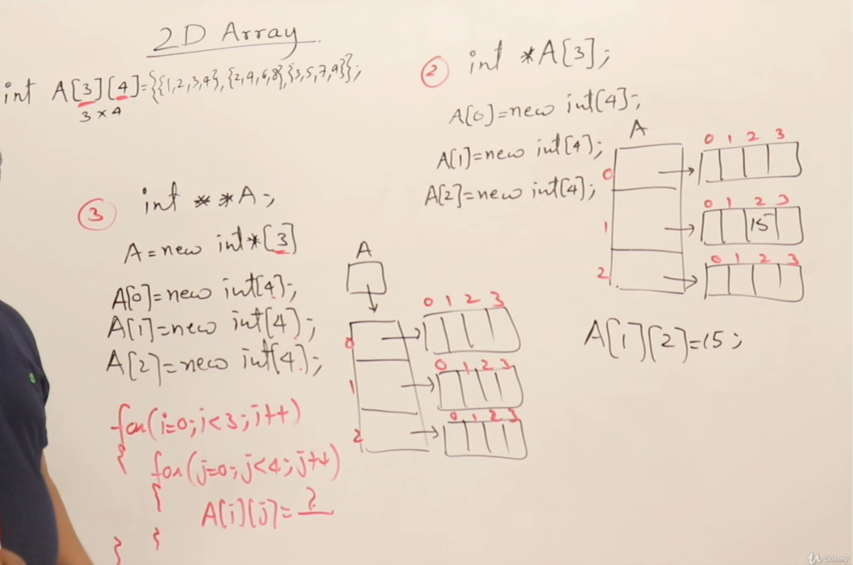 2D Array
int A[3][4]={{1,2,3,4},{2,4,6,8},{3,5,7,9}};
3×4
② int *A[3];
A[0]=new int[4];
A[1]=new int[4];
A[2]=new int[4];
A
0 1 2 3
0
0 1 2 3
1
15
0 1 2 3
2
A[1][2]=15;
③ int **A;
A=new int*[3]
A[0]=new int[4];
A[1]=new int[4];
A[2]=new int[4];
A
0 1 2 3
0
0 1 2 3
1
0 1 2 3
2
for(i=0;i<3;i++)
{
for(j=0;j<4;j++)
{
A[i][j]=?
}
}
Udemy